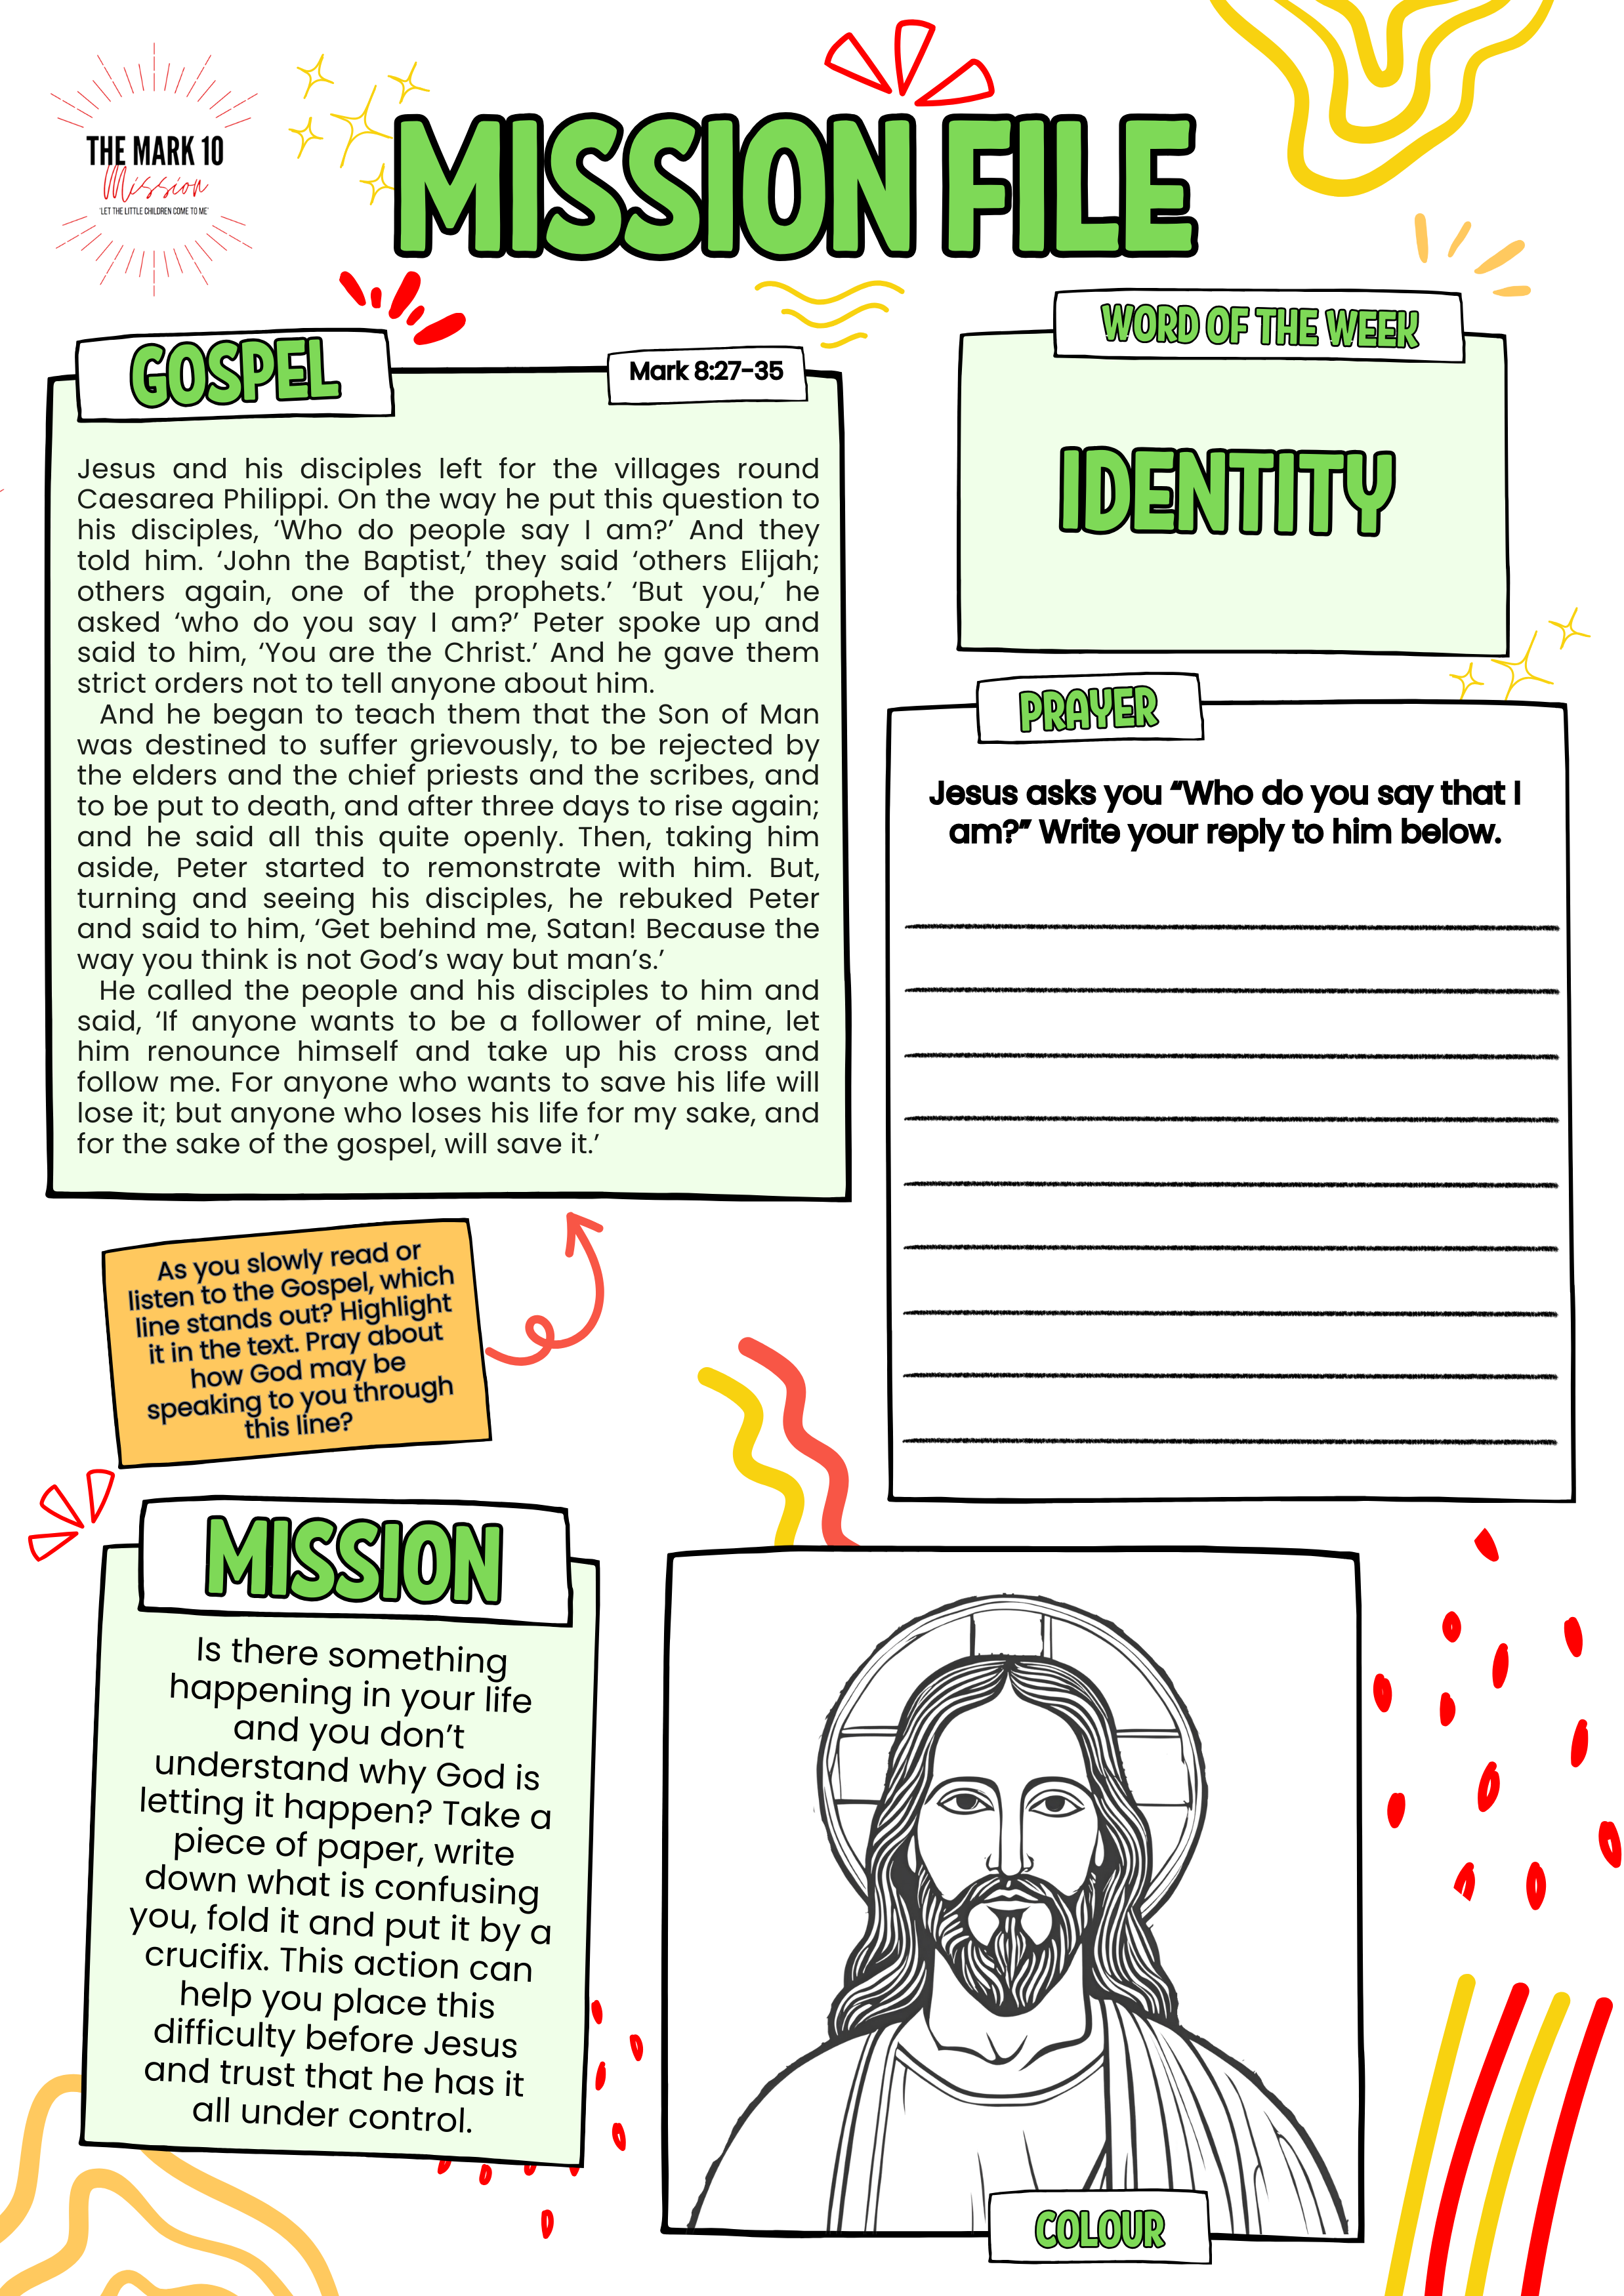 THE MARK 10
Mission
'LET THE LITTLE CHILDREN COME TO ME'
MISSION FILE
GOSPEL
Mark 8:27-35
Jesus and his disciples left for the villages round
Caesarea Philippi. On the way he put this question to
his disciples, ‘Who do people say I am?’ And they
told him. ‘John the Baptist,’ they said ‘others Elijah;
others again, one of the prophets.’ ‘But you,’ he
asked ‘who do you say I am?’ Peter spoke up and
said to him, ‘You are the Christ.’ And he gave them
strict orders not to tell anyone about him.
And he began to teach them that the Son of Man
was destined to suffer grievously, to be rejected by
the elders and the chief priests and the scribes, and
to be put to death, and after three days to rise again;
and he said all this quite openly. Then, taking him
aside, Peter started to remonstrate with him. But,
turning and seeing his disciples, he rebuked Peter
and said to him, ‘Get behind me, Satan! Because the
way you think is not God’s way but man’s.’
He called the people and his disciples to him and
said, ‘If anyone wants to be a follower of mine, let
him renounce himself and take up his cross and
follow me. For anyone who wants to save his life will
lose it; but anyone who loses his life for my sake, and
for the sake of the gospel, will save it.’
WORD OF THE WEEK
IDENTITY
PRAYER
Jesus asks you “Who do you say that I
am?” Write your reply to him below.
As you slowly read or
listen to the Gospel, which
line stands out? Highlight
it in the text. Pray about
how God may be
speaking to you through
this line?
MISSION
Is there something
happening in your life
and you don’t
understand why God is
letting it happen? Take a
piece of paper, write
down what is confusing
you, fold it and put it by a
crucifix. This action can
help you place this
difficulty before Jesus
and trust that he has it
all under control.
COLOUR